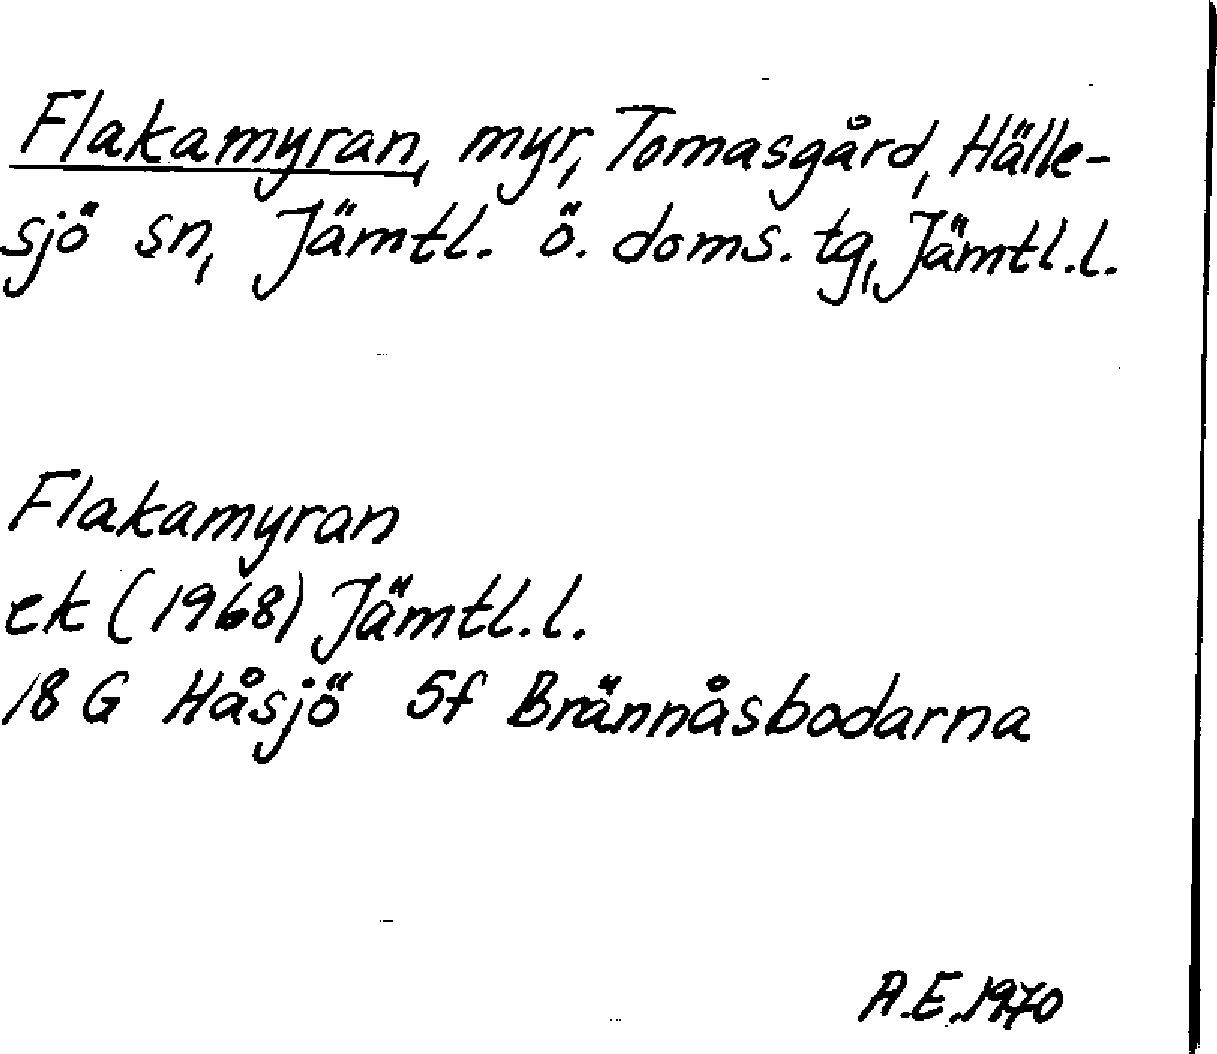 Flakamyran, myr, Tomasgård, Hälle-
sjö sn, Jämtl. ö. doms. tg, Jämtl. l.
Flakamyran
ek (1968) Jämtl. l.
18 G Håsjö 5f Brännåsbodarna
A.E. 1970